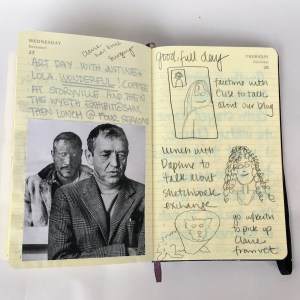 WEDNESDAY
Claire has knee
surgery
ART DAY WITH JUSTINE +
LOLA. WONDERFUL! COFFEE
AT STORYVILLE AND THEN
THE WYETH EXHIBIT @ SAM
THEN LUNCH @ FOUR SEASONS
good, full day
THURSDAY
facetime with
Cuse to talk
about our blog
lunch with
Daphne to
talk about
sketchbook
exchange
go w/ Keith
to pick up
Claire
from vet